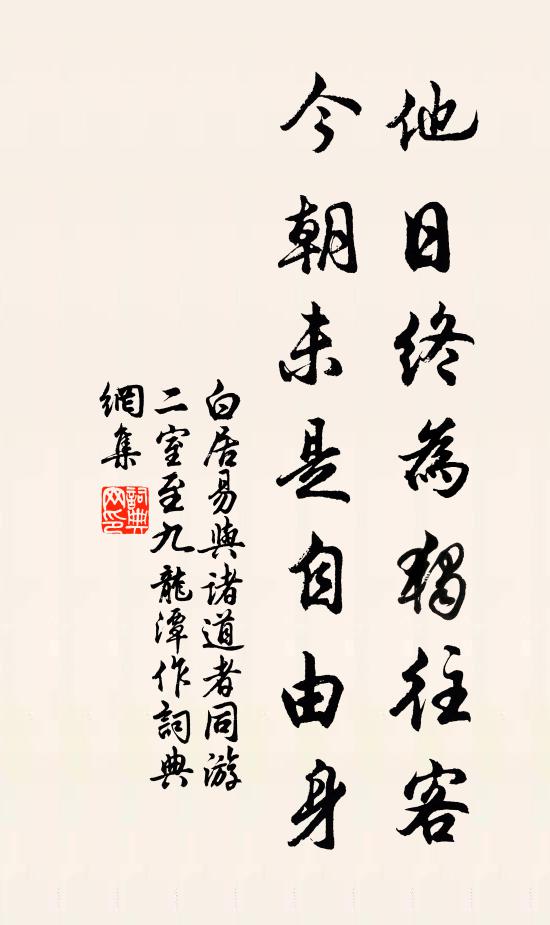 他日終為獨往客
今朝未是自由身
白居易與诸道者同游
二室至九龍潭作詞典
網集
詞典
网印